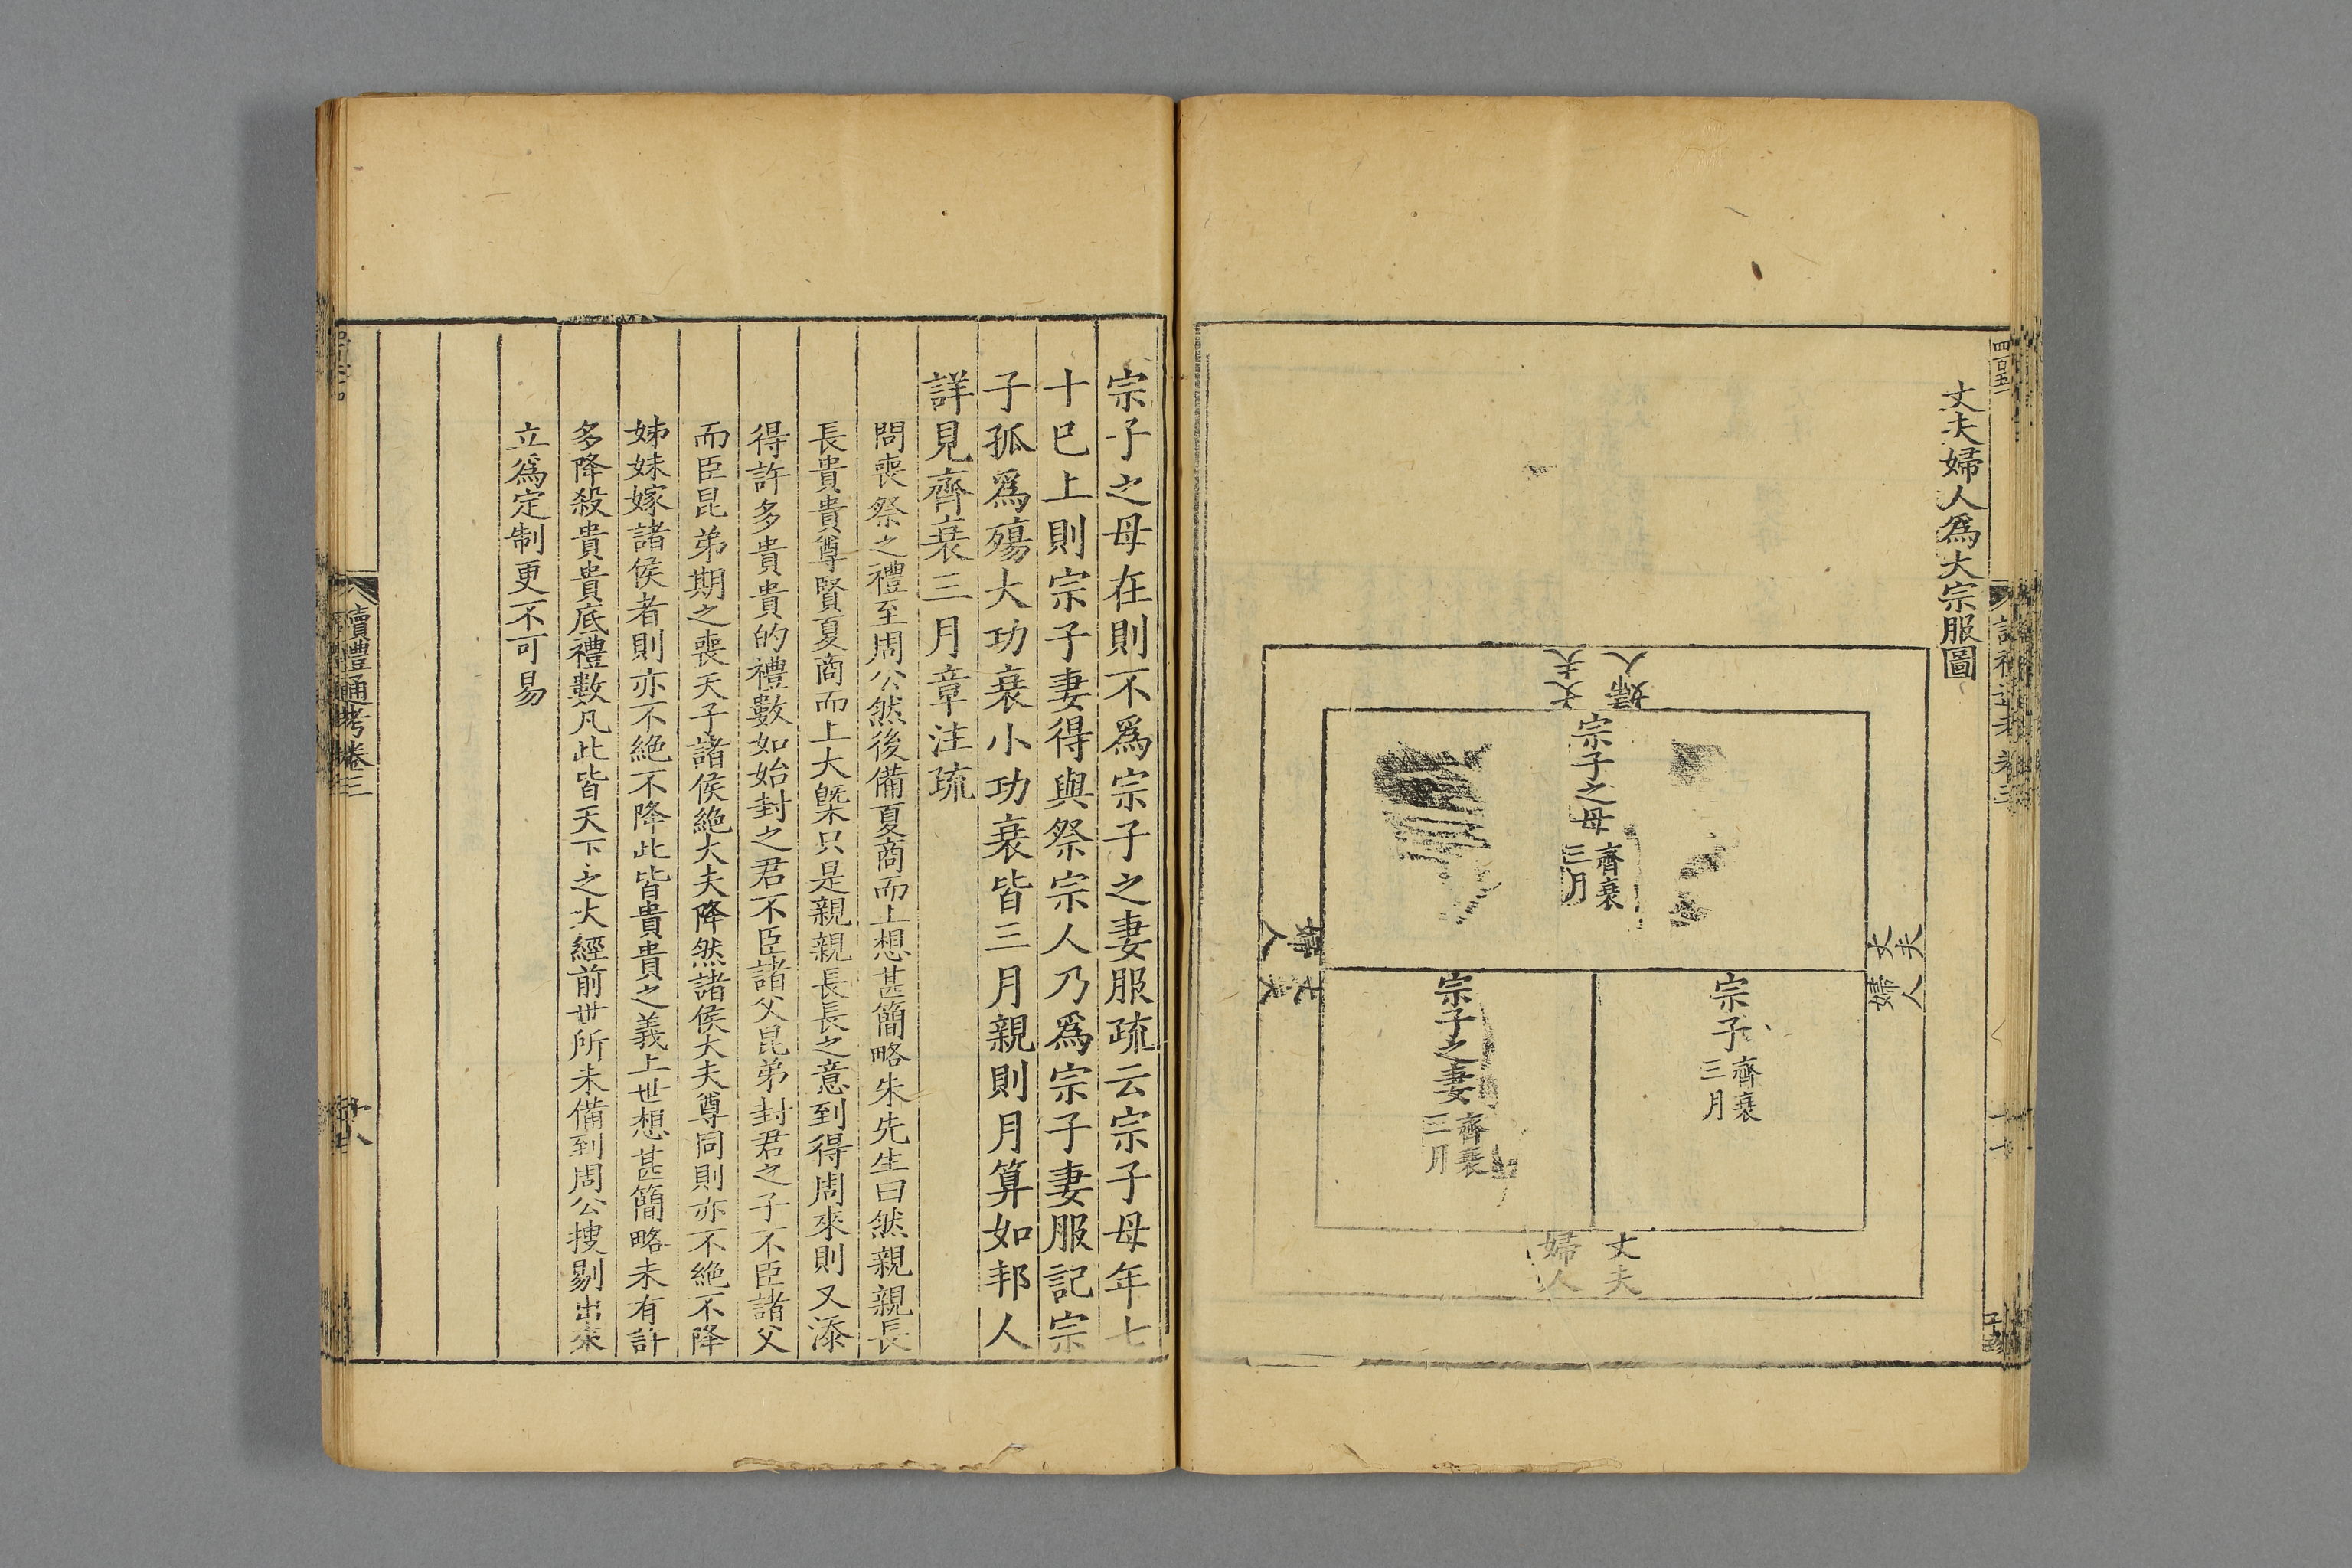 丈夫婦人爲大宗服圖
丈夫
婦人
宗子之母
齊衰
三月
丈夫
婦人
宗子
齊衰
三月
宗子之妻
齊衰
三月
婦人
丈夫
丈夫
婦人
宗子之母在則不爲宗子之妻服疏云宗子母年七
十已上則宗子妻得與祭宗人乃爲宗子妻服記宗
子孤爲殤大功衰小功衰皆三月親則月算如邦人
詳見齊衰三月章注疏
問喪祭之禮至周公然後備夏商而上想甚簡略朱先生曰然親親長
長貴貴尊賢夏商而上大槩只是親親長長之意到得周來則又添
得許多貴貴的禮數如始封之君不臣諸父昆弟封君之子不臣諸父
而臣昆弟期之喪天子諸侯絶大夫降然諸侯大夫尊同則亦不絶不降
姊妹嫁諸侯者則亦不絶不降此皆貴貴之義上世想甚簡略未有許
多降殺貴貴底禮數凡此皆天下之大經前世所未備到周公搜剔出來
立爲定制更不可易
讀禮通考卷三